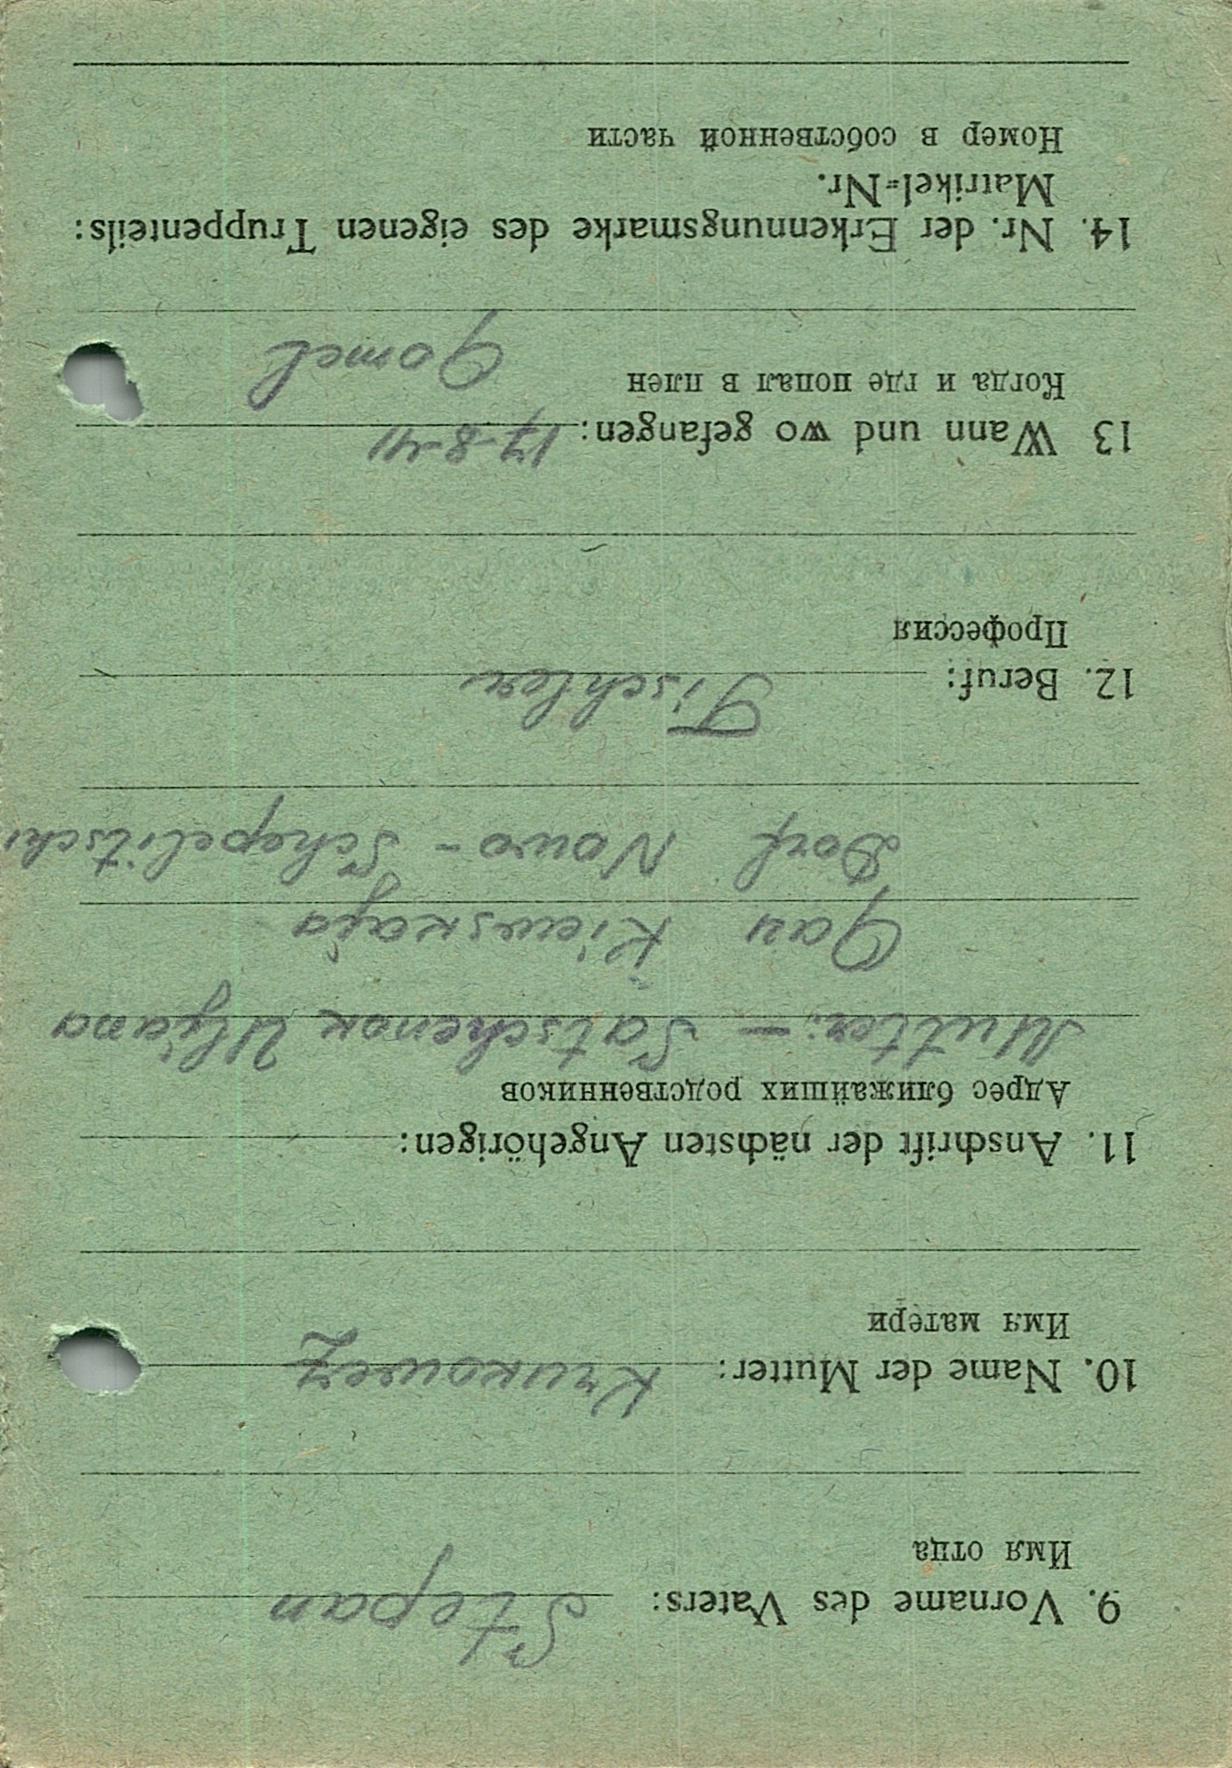 9. Vorname des Vaters: Stepan
Имя отца
10. Name der Mutter: Krukowez
Имя матери
11. Anschrift der nächsten Angehörigen:
Адрес ближайших родственников
Mutter: – Satschenok Uljana
Gau Kiewskaja
Dorf Nowo – Schepelitschi
12. Beruf: Tischler
Профессия
13 Wann und wo gefangen: 17-8-41
Когда и где попал в плен
Gomel
14. Nr. der Erkennungsmarke des eigenen Truppenteils:
Matrikel=Nr.
Номер в собственной части